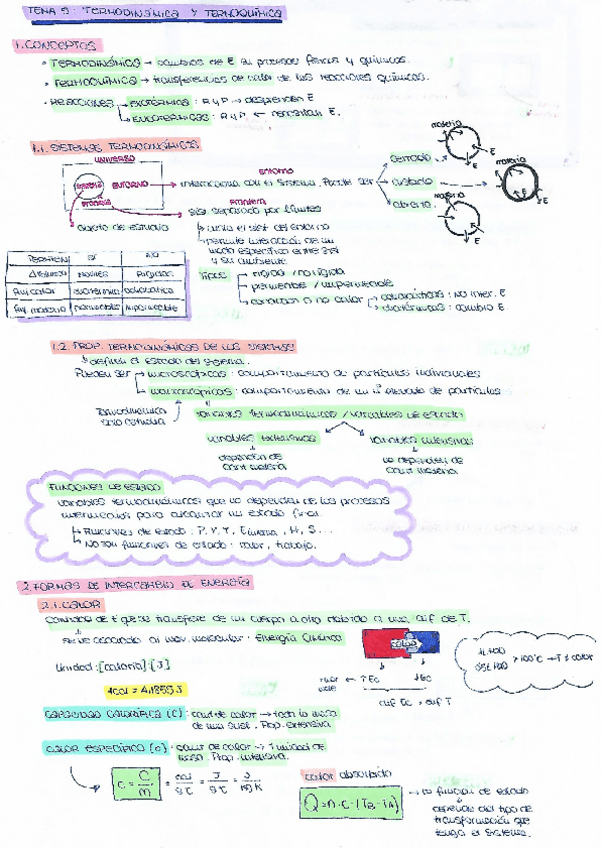 TEMA 5: TERMODINÁMICA Y TERMOQUÍMICA
1. CONCEPTOS
· TERMODINÁMICA → cambios de E en procesos físicos y químicos.
· TERMOQUÍMICA → transferencias de calor de las reacciones químicas.
· REACCIONES → EXOTÉRMICA: R y P → desprenden E
→ ENDOTÉRMICAS: R y P ← necesitan E.
1.1. SISTEMAS TERMODINÁMICOS
UNIVERSO
ENTORNO
frontera
entorno
interacciona con el sistema. Puede ser
cerrado
aislado
abierto
materia
E
materia
E
materia
E
objeto de estudio
frontera
sist. separado por límites
aísla el sist. del entorno
permite interacción de un
modo específico entre sist
y su ambiente.
Tipos
rígida / no rígida
permeable / impermeable
conducen o no calor
adiabáticas: no inter. E
diatérmicas: cambio E
PERMITEN
SÍ
NO
Fluj calor
diatérmica
adiabática
Fluj. materia
permeables
impermeable
1.2. PROP. TERMODINÁMICAS DE LOS SISTEMAS
definen el estado del sistema.
Pueden ser → microscópicas: comportamiento de partículas individuales
→ macroscópicas: comportamiento de un nº elevado de partículas
Termodinámica
solo estudia
variables termodinámicas / variables de estado
variables extensivas
variables intensivas
dependen de
cant materia
no dependen de
cant materia
FUNCIONES DE ESTADO
variables termodinámicas que no dependen de los procesos
intermedios para alcanzar un estado final.
→ Funciones de estado: P, V, T, E interna, H, S...
→ No son funciones de estado: calor, trabajo.
2. FORMAS DE INTERCAMBIO DE ENERGÍA
2.1. CALOR
Cantidad de E que se transfiere de un cuerpo a otro debido a una dif de T.
asociado al mov. molecular: Energía Cinética
Unidad: [caloría]: [J]
1 cal = 4,1855 J
calor
↑Ec
↓Ec
dif Ec → dif T
CAPACIDAD CALORÍFICA (C): cant de calor → toda la masa
de una sust. Prop. extensiva
CALOR ESPECÍFICO (c): cant de calor → 1 unidad de
masa. Prop. intensiva.
c = C/m = cal/g°C = J/g°C = J/kg K
calor absorbido
Q = m · c · (TB - TA)
→ no función de estado
depende del tipo de
transformación que
tenga el sistema.